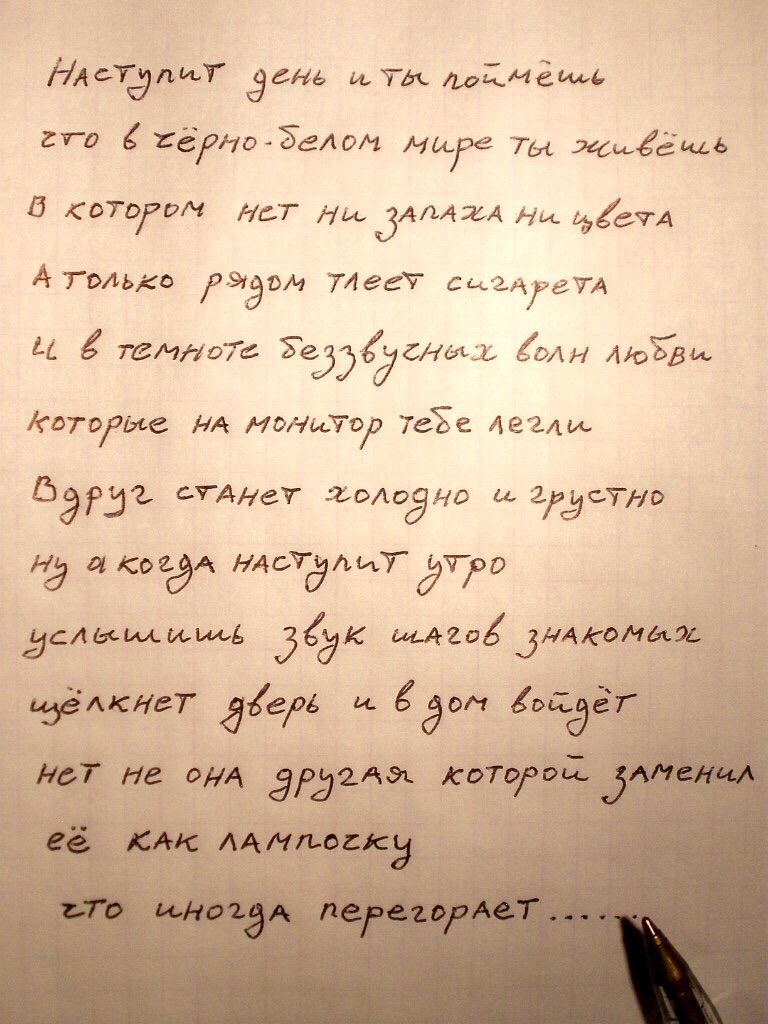 Наступит день и ты поймёшь
что в чёрно-белом мире ты живёшь
В котором нет ни запаха ни цвета
А только рядом тлеет сигарета
И в темноте беззвучных волн любви
которые на монитор тебе легли
Вдруг станет холодно и грустно
ну а когда наступит утро
услышишь звук шагов знакомых
щёлкнет дверь и в дом войдёт
нет не она другая которой заменил
её как лампочку
что иногда перегорает.......